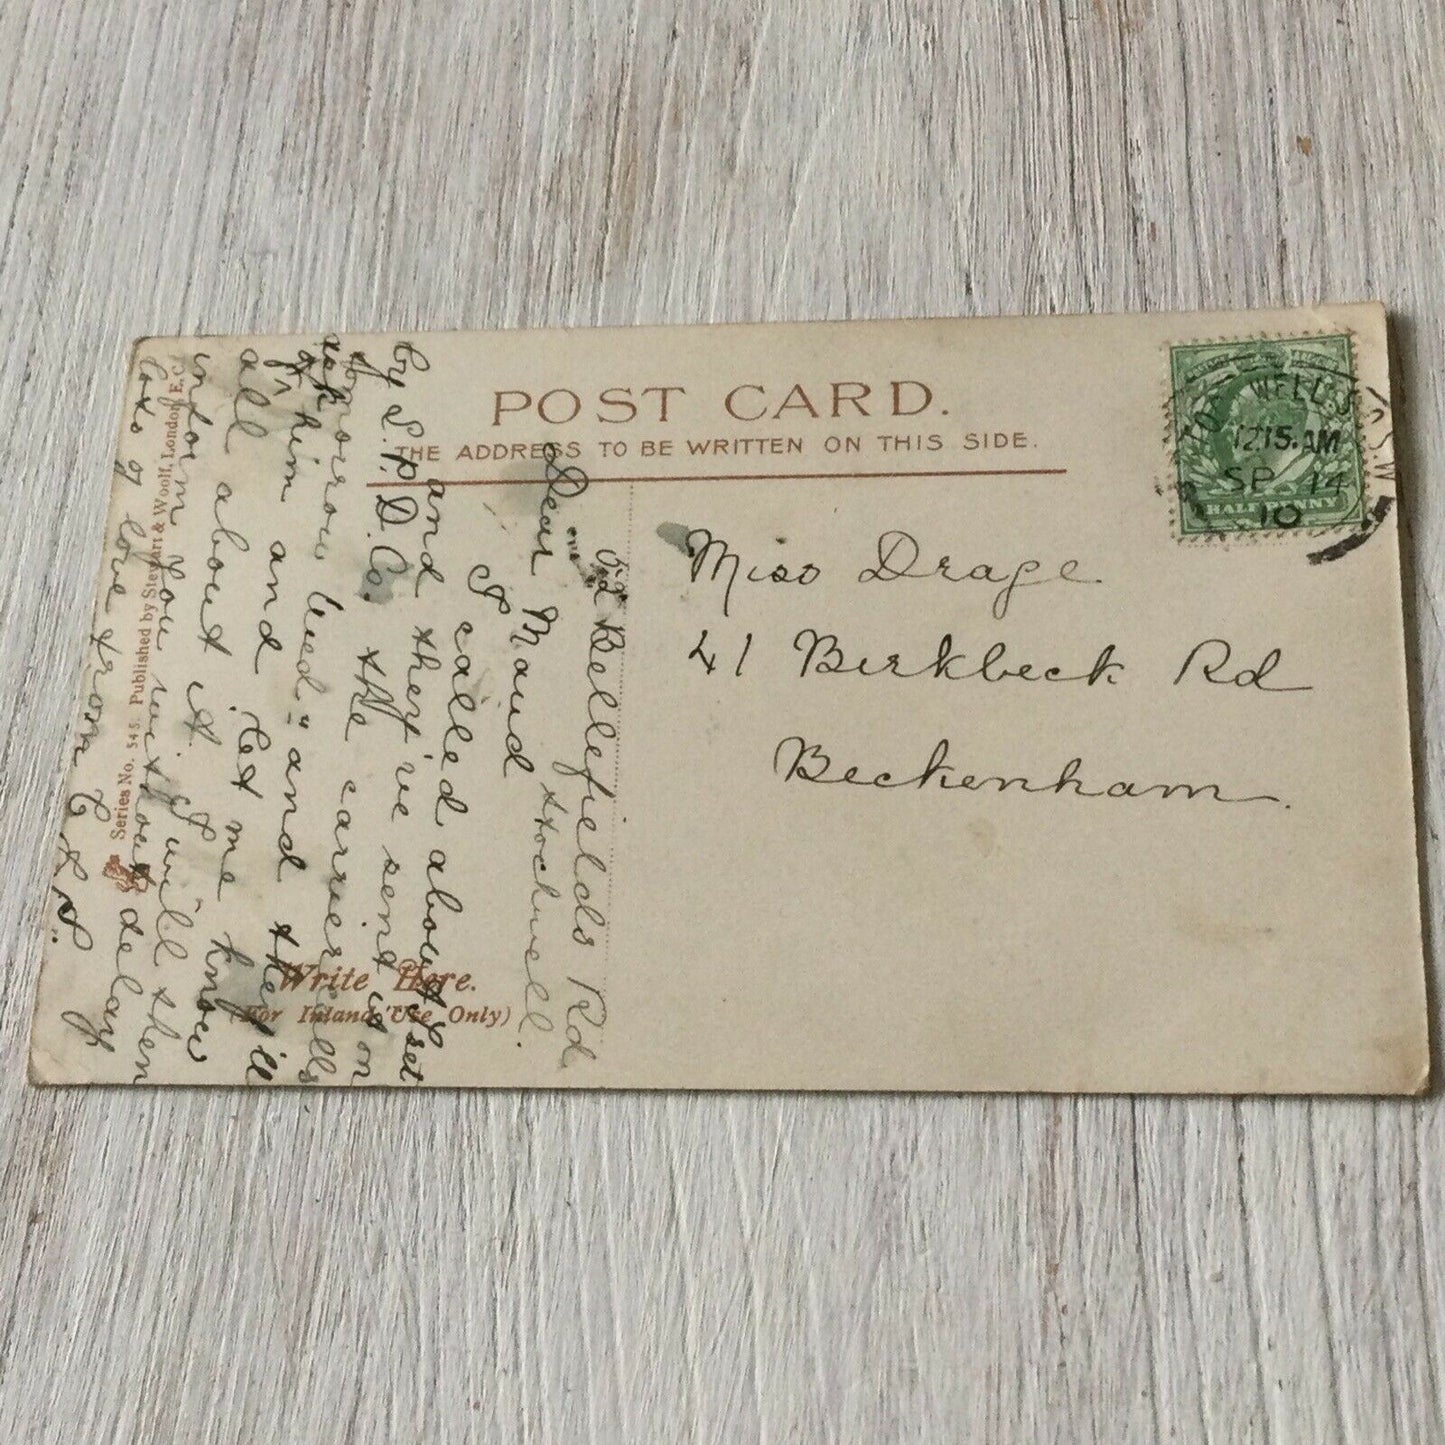 POST CARD.
THE ADDRESS TO BE WRITTEN ON THIS SIDE.
WELLS
12.15.AM
SP 14
10
HALFPENNY
Miss Drage.
41 Birkbeck Rd
Beckenham.
Bellefields Rd
Stockwell.
Dear Maud
I called about set
and they've sent it on
by L.P.D.Co. the carrier calls
Wed" and they'll
of him and let me know
all about it. I will then
inform you without delay
lots of love from
Write Here.
(For Inland Use Only)
Series No. 545. Published by Stewart & Woolf, London, E.C.